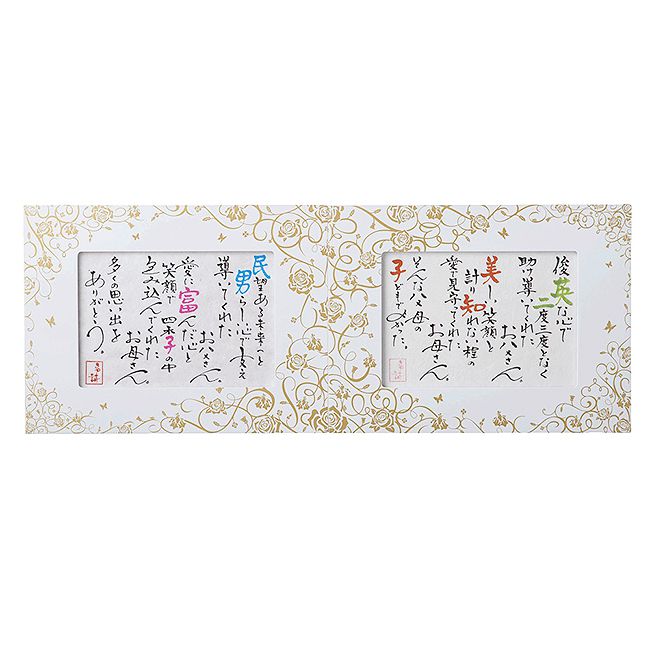 俊英な心で
二度三度となく
助け導いてくれた
お父さん。
美しい笑顔と
計り知れない程の
愛で見守ってくれた
お母さん。
そんな父母の
子どもでよかった。
民望ある未来へと
男らしい心で支え
導いてくれた
お父さん。
愛に富んだ心と
笑顔で四季子の中
包み込んでくれた
お母さん。
多くの思い出を
ありがとう。